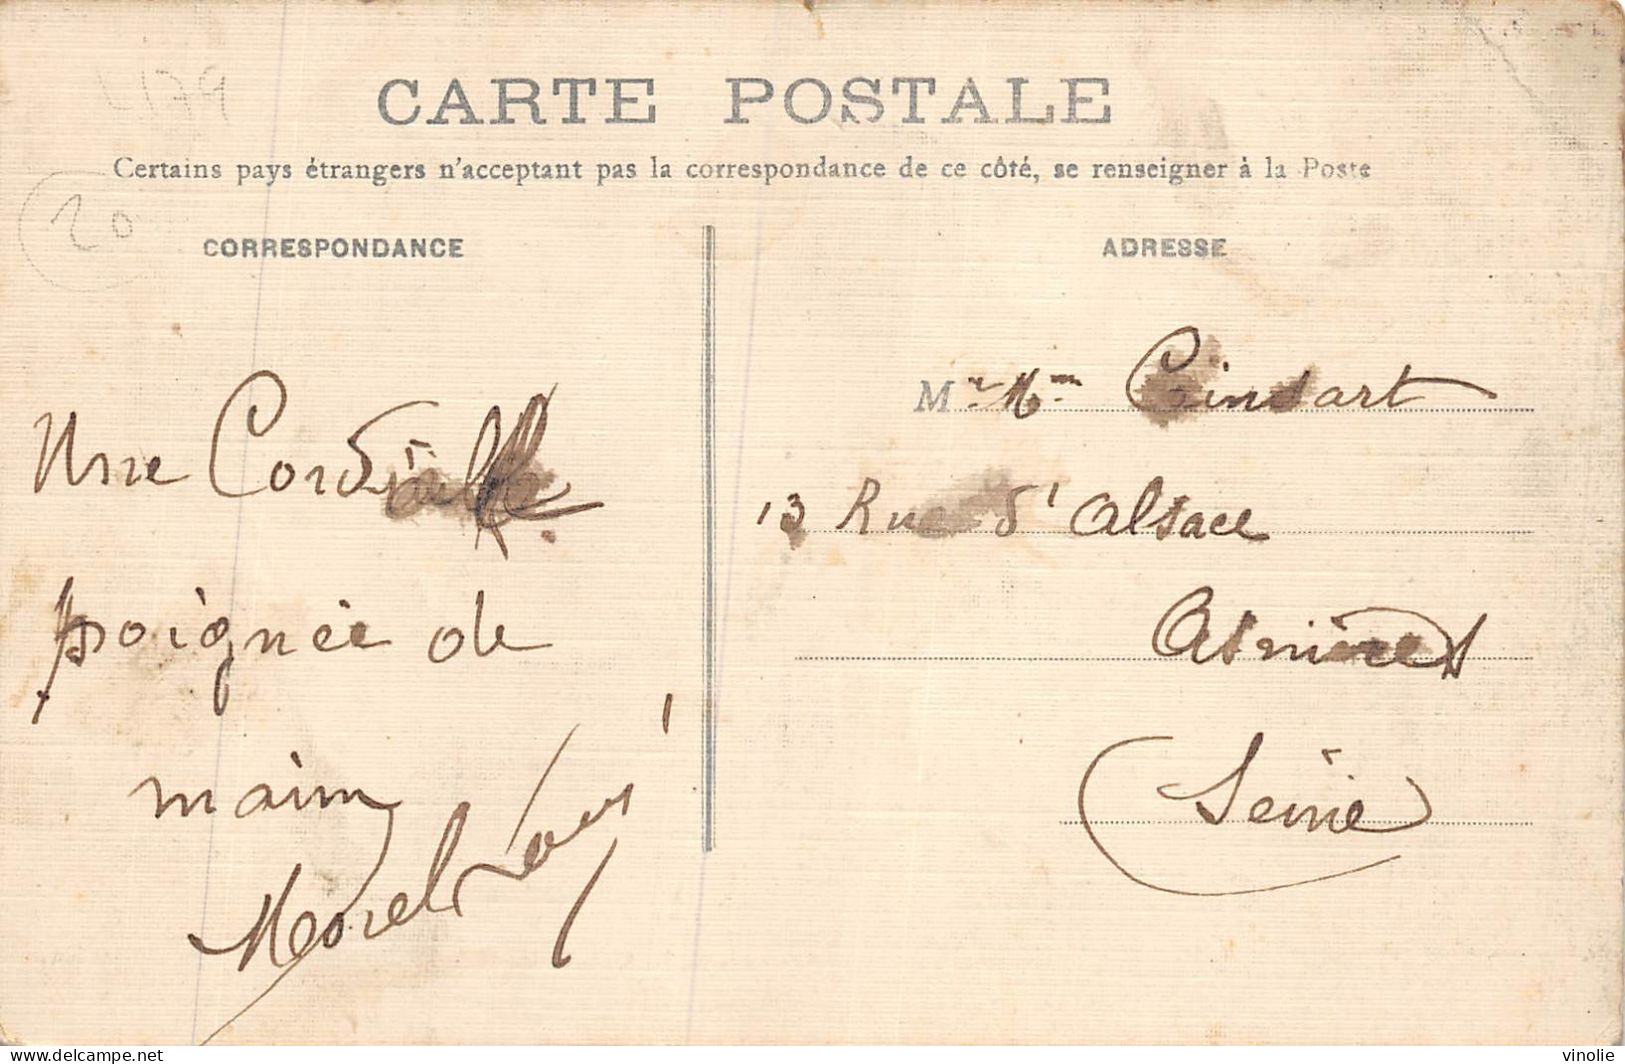 L179
CARTE POSTALE
Certains pays étrangers n'acceptant pas la correspondance de ce côté, se renseigner à la Poste
20
CORRESPONDANCE
Une Cordialle
poignée de
main
Morel Louis
ADRESSE
Mr Mme
13 Rue d'Alsace
Asnières
Seine
delcampe.net
vinolie